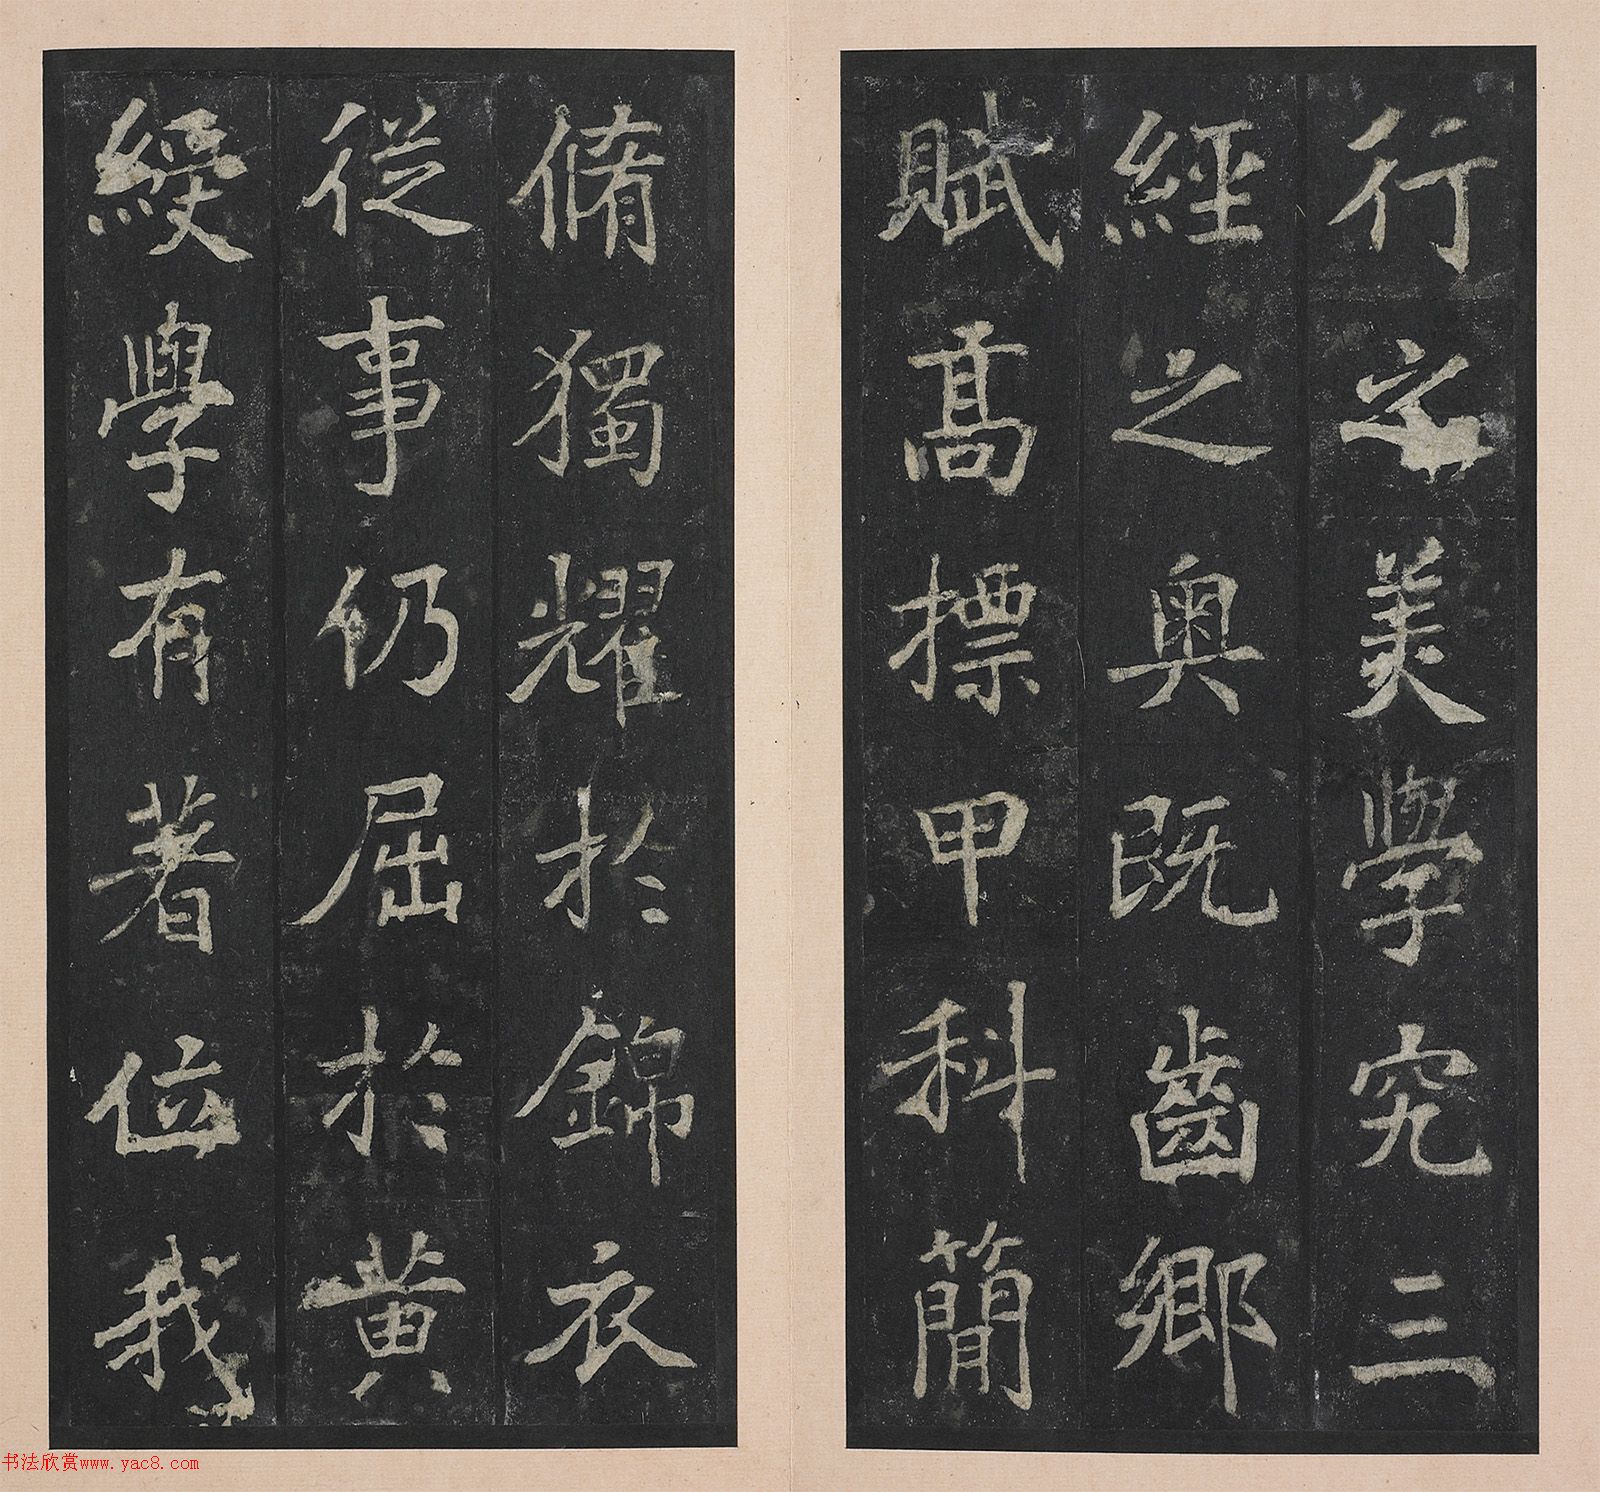 行之美學究三
經之奧既齒鄉
賦高摽甲科簡
脩獨耀於錦衣
從事仍屈於黃
綬學有著位我
书法欣赏www.yac8.com